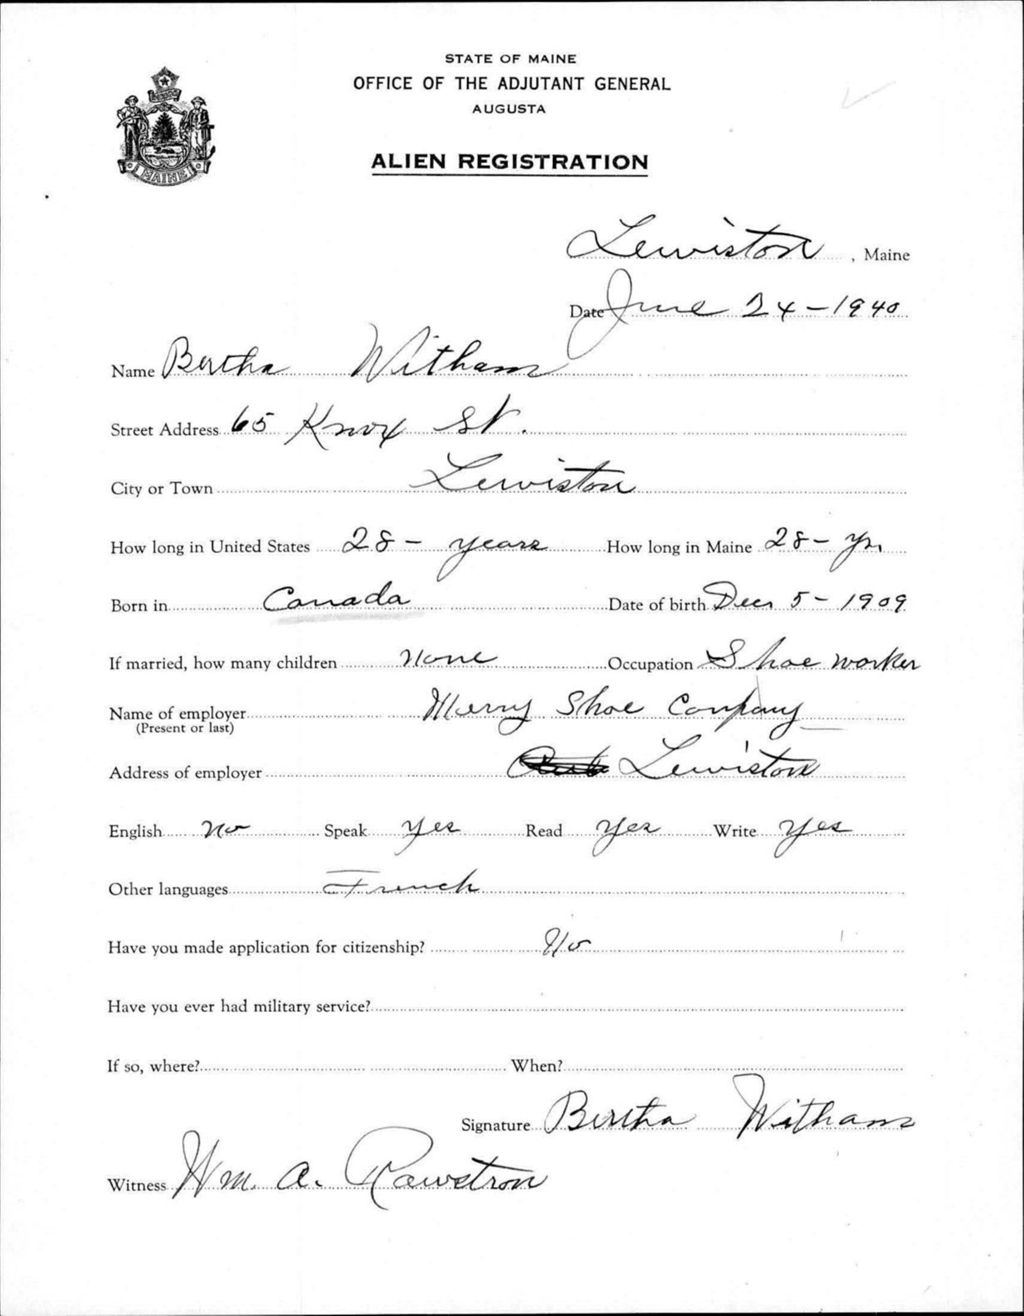 STATE OF MAINE
OFFICE OF THE ADJUTANT GENERAL
AUGUSTA
ALIEN REGISTRATION
MAINE
Lewiston, Maine
Date June 24-1940
Name Bertha Witham
Street Address 65 Knox St.
City or Town Lewiston
How long in United States 28- years How long in Maine 28- yr.
Born in Canada Date of birth Dec 5- 1909
If married, how many children None Occupation Shoe worker
Name of employer Shoe Company
(Present or last)
Address of employer Lewiston
English No Speak Yes Read Yes Write Yes
Other languages French
Have you made application for citizenship? No
Have you ever had military service?
If so, where? When?
Signature Bertha Witham
Witness Wm. A. Rawstron